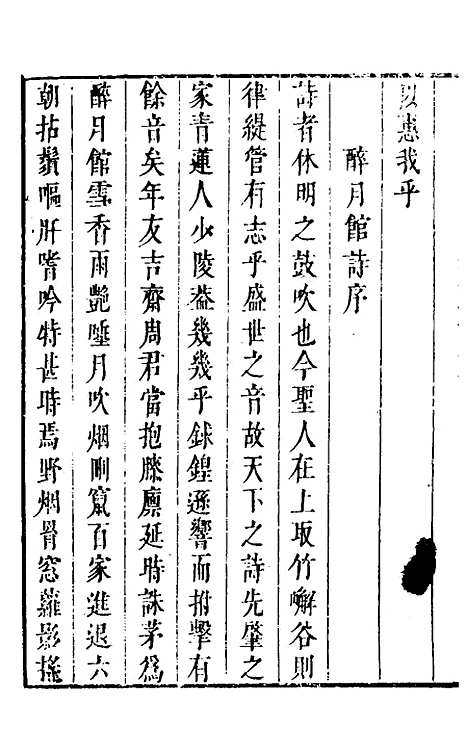 以惠我乎
醉月館詩序
詩者休明之鼓吹也今聖人在上取竹嶰谷則
律緹管有志乎盛世之音故天下之詩先肇之
家青蓮人少陵葢幾幾乎銶鍠遜響而拊擊有
餘音矣年友吉齋周君當抱膝廡延時誅茅為
醉月館雪香雨艷唾月吹烟刪竄百家進退六
朝拈鬚嘔肝嗜吟特甚時焉野烟骨窓蘿影搖